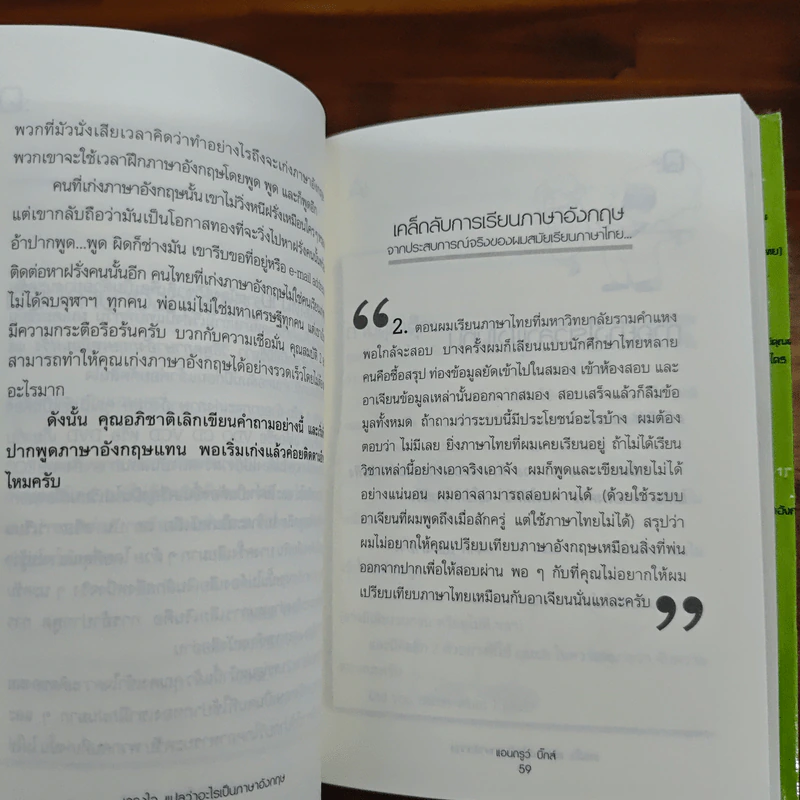 พวกที่มัวนั่งเสียเวลาคิดว่าทำอย่างไรถึงจะเก่งภาษาอังกฤษ
พวกเขาจะใช้เวลาฝึกภาษาอังกฤษโดยพูด พูด และก็พูดอีก
คนที่เก่งภาษาอังกฤษนั้น เขาไม่วิ่งหนีฝรั่งเหมือนใครๆ
แต่เขากลับถือว่ามันเป็นโอกาสทองที่จะวิ่งไปหาฝรั่งคนนั้น
อ้าปากพูด...พูด ผิดก็ช่างมัน เขารีบขอที่อยู่หรือ e-mail
ติดต่อหาฝรั่งคนนั้นอีก คนไทยที่เก่งภาษาอังกฤษไม่ใช่คน
ไม่ได้จบจุฬาฯ ทุกคน พ่อแม่ไม่ใช่มหาเศรษฐีทุกคน
มีความกระตือรือร้นครับ บวกกับความเชื่อมั่น คุณสมบัติ
สามารถทำให้คุณเก่งภาษาอังกฤษได้อย่างรวดเร็วโดยไม่
อะไรมาก
ดังนั้น คุณอภิชาติเลิกเขียนคำถามอย่างนี้
ปากพูดภาษาอังกฤษแทน พอเริ่มเก่งแล้วค่อยติดตาม
ไหมครับ
แปลว่าอะไรเป็นภาษาอังกฤษ
เคล็ดลับการเรียนภาษาอังกฤษ
จากประสบการณ์จริงของผมสมัยเรียนภาษาไทย...
“ 2. ตอนผมเรียนภาษาไทยที่มหาวิทยาลัยรามคำแหง
พอใกล้จะสอบ บางครั้งผมก็เลียนแบบนักศึกษาไทยหลาย
คนคือซื้อสรุป ท่องข้อมูลยัดเข้าไปในสมอง เข้าห้องสอบ และ
อาเจียนข้อมูลเหล่านั้นออกจากสมอง สอบเสร็จแล้วก็ลืมข้อ
มูลทั้งหมด ถ้าถามว่าระบบนี้มีประโยชน์อะไรบ้าง ผมต้อง
ตอบว่า ไม่มีเลย ยิ่งภาษาไทยที่ผมเคยเรียนอยู่ ถ้าไม่ได้เรียน
วิชาเหล่านี้อย่างเอาจริงเอาจัง ผมก็พูดและเขียนไทยไม่ได้
อย่างแน่นอน ผมอาจสามารถสอบผ่านได้ (ด้วยใช้ระบบ
อาเจียนที่ผมพูดถึงเมื่อสักครู่ แต่ใช้ภาษาไทยไม่ได้) สรุปว่า
ผมไม่อยากให้คุณเปรียบเทียบภาษาอังกฤษเหมือนสิ่งที่พ่น
ออกจากปากเพื่อให้สอบผ่าน พอ ๆ กับที่คุณไม่อยากให้ผม
เปรียบเทียบภาษาไทยเหมือนกับอาเจียนนั่นแหละครับ ”
แอนดรูว์ บิ๊กส์
59